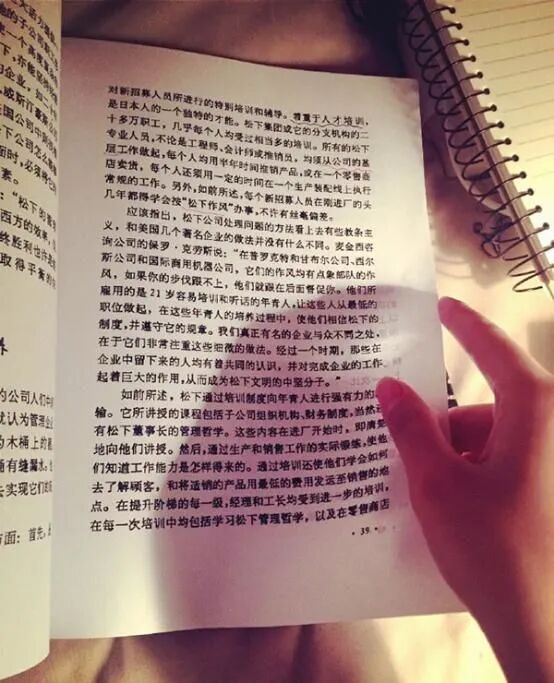 的子公司
一个高度
的企业，如
威斯汀豪斯
下公司怎么
面时，必须将
素。
“松下的
西方的故事，
终胜利也许是
的公司人们中
就认为管理企
的木桶上的
桶有缝漏水。
去实现它们
方面：首先，
对新招募人员所进行的特别培训和辅导。着重于人才培训，
是日本人的一个独特的才能。松下集团或它的分支机构的二
十多万职工，几乎每个人均受过相当多的培训。所有的松下
专业人员，不论是工程师、会计师或推销员，均须从公司的基
层工作做起，每个人均用半年时间推销产品，或在一个零售
商店卖货，每个人还须用一定的时间在一个生产装配线上执行
常规的工作。另外，如前所述，每个新招募人员在刚进厂的头
几年都得学会按“松下作风”办事，不许有丝毫偏差。
应该指出，松下公司处理问题的方法看上去有些教条主
义，和美国几个著名企业的做法并没有什么不同。麦金西咨
询公司的保罗·克劳斯说：“在普罗克特和甘布尔公司、西尔
斯公司和国际商用机器公司，它们的作风均有点象部队的作
风，如果你的步伐跟不上，他们就跟在后面督促你。他们所
雇用的是21岁容易培训和听话的年青人，让这些人从最低的
职位做起，在这些年青人的培养过程中，使他们相信松下的
制度，并遵守它的规章。我们真正有名的企业与众不同之处，
在于它们非常注重这些细微的做法。经过一个时期，那些在
企业中留下来的人均有着共同的认识，并对完成企业的工作
起着巨大的作用，从而成为松下文明的中坚分子。”
如前所述，松下通过培训制度向年青人进行强有力的
输。它所讲授的课程包括子公司组织机构、财务制度，当然还
有松下董事长的管理哲学。这些内容在进厂开始时，即清楚
地向他们讲授。然后，通过生产和销售工作的实际锻炼，使他
们知道工作能力是怎样得来的。通过培训还使他们学会如何
去了解顾客，和将适销的产品用最低的费用发运至销售的地
点。在提升阶梯的每一级，经理和工长均受到进一步的培训，
在每一次培训中均包括学习松下管理哲学，以及在零售商店
·39·